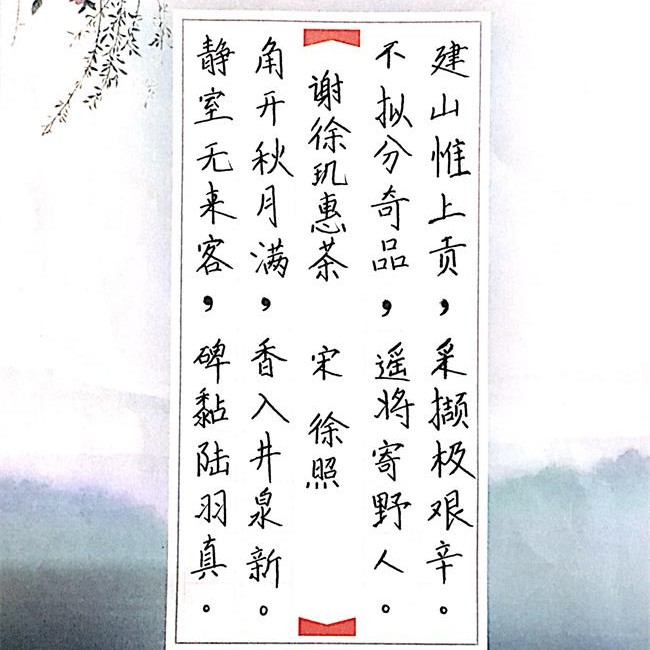 建山惟上贡，采撷极艰辛。
不拟分奇品，遥将寄野人。
谢徐玑惠茶 宋 徐照
角开秋月满，香入井泉新。
静室无来客，碑黏陆羽真。